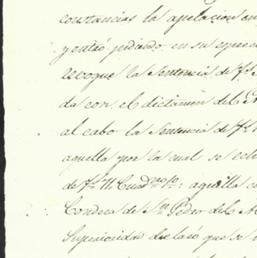 constancias la apelacion en
y entró pidiendo en su espres
revoque la Sentencia de f.
da con el dictamen del
al cabo la Sentencia de f.
aquella por la cual se este
de f. 11 Cuad.no 1o: aquella
Condesa de Sn Pedro del A
Superioridad declaró que se